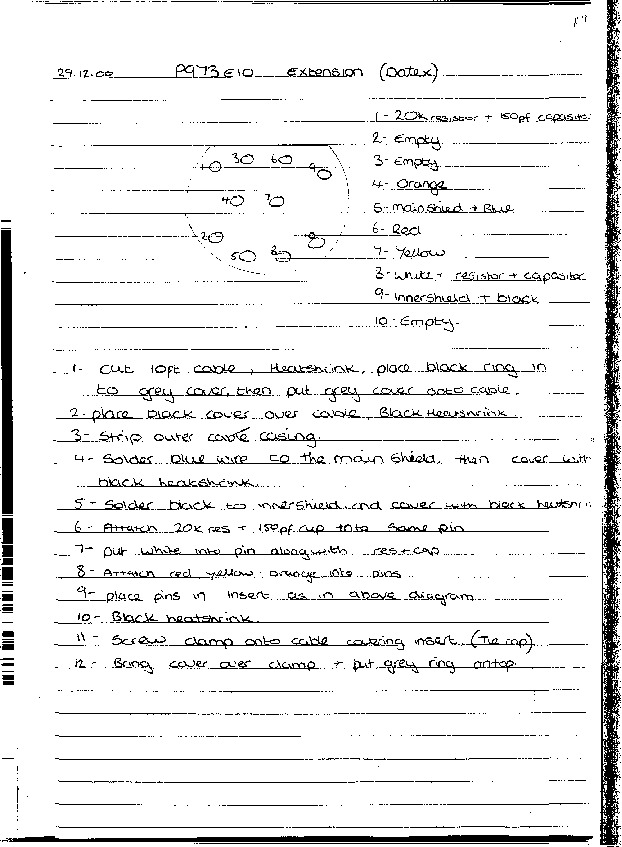 29.12.00 P973E10 Extension (Datex)
1- 20k resistor + 150pf capasito
2- Empty
3- Empty
4- Orange
5- main shied + Blue
6- Red
7- Yellow
8- white - resistor + capasitor
9- innershield + black
10- Empty.
10 30 60 9
40 70
20 8
50
1- Cut 10pt cable, Heatshrink, place black ring in
to grey cover, then put grey cover onto cable.
2- place black cover over cable, Black Heatshrink
3- Strip outer cable casing.
4- Solder blue wire to the main shield, then cover with
black heatshrink.
5- Solder black to innershield and cover with black heatshri
6- Attatch 20k res + 150pf cap into same pin
7- put white into pin alongwith res + cap
8- Attatch red yellow orange into pins
9- place pins in insert as in above diagram
10- Black heatshrink.
11- Screw clamp onto cable covering insert (Tie rap)
12- Bring cover over clamp + put grey ring ontop